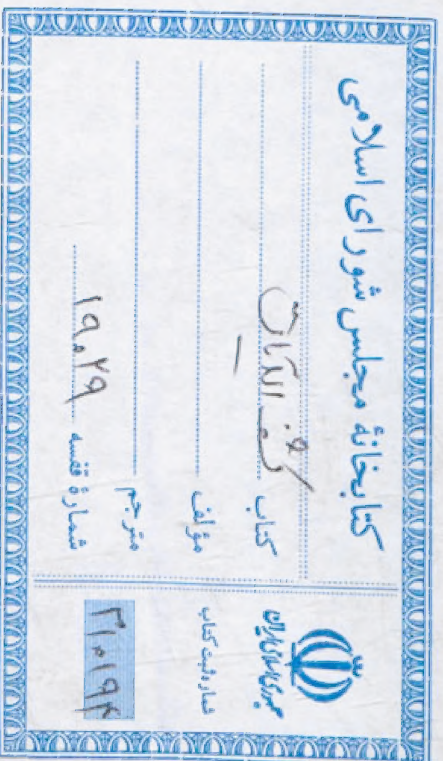 کتابخانهٔ مجلس شورای اسلامی
کتاب کشف الآیات
مؤلف
مترجم
شمارهٔ قفسه ۱۹۰۲۹
جمهوری اسلامی ایران
شماره ثبت کتاب
۳۱۰۱۹۴